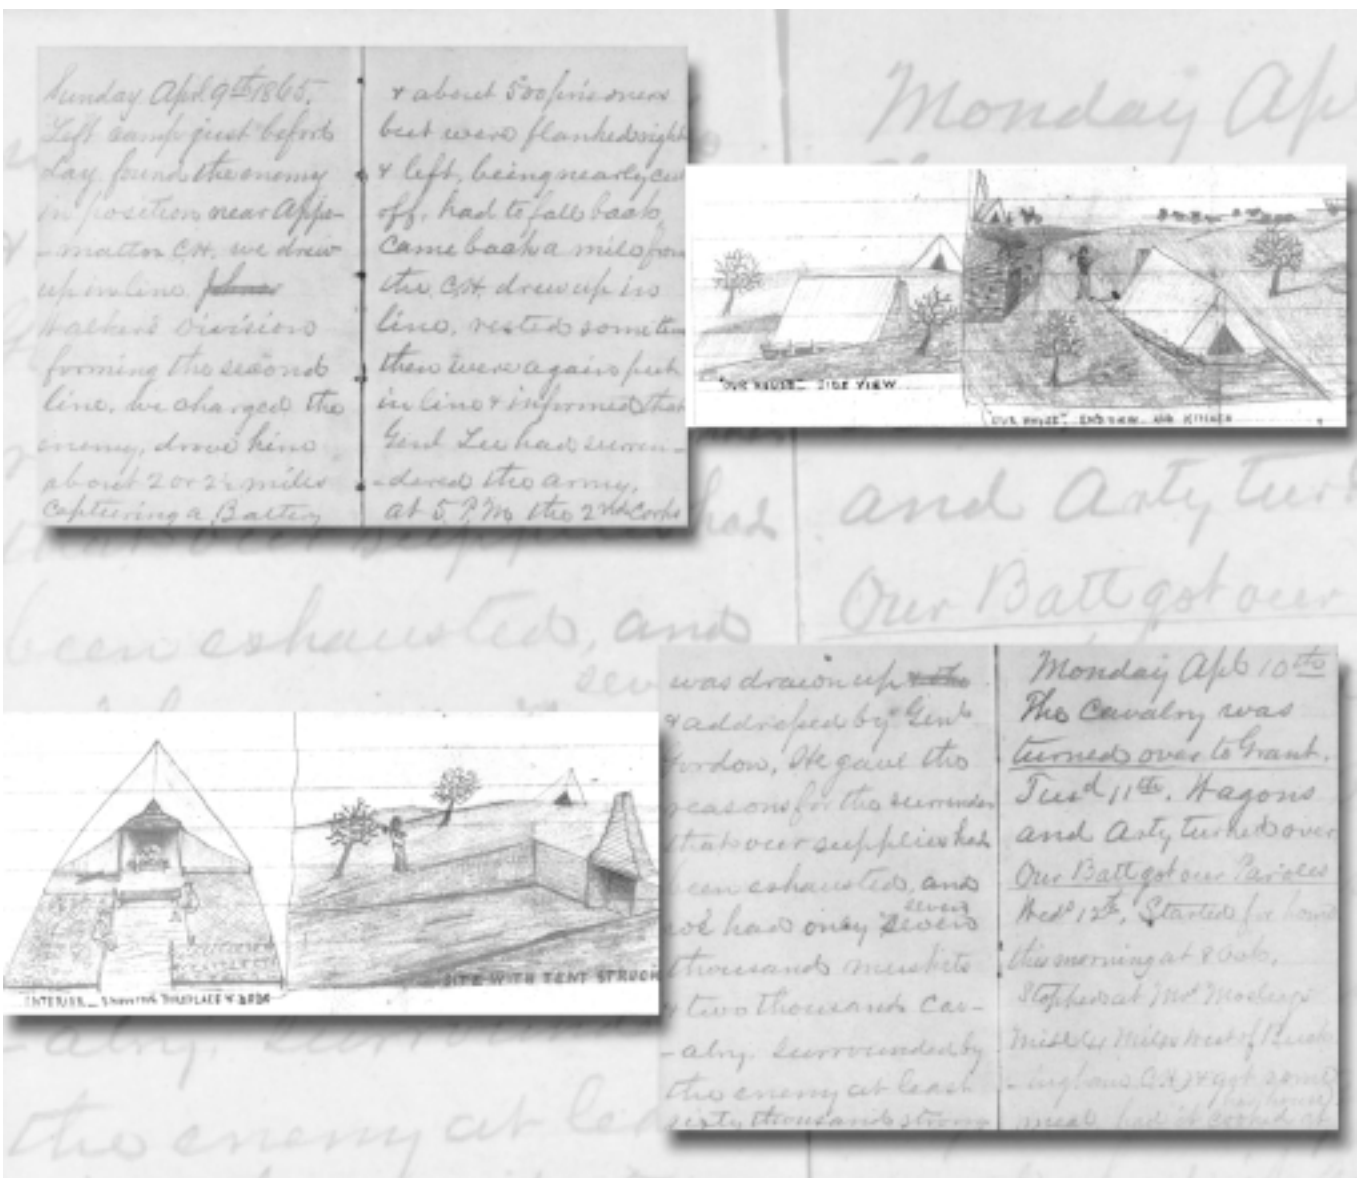 Sunday Apl 9th 1865.
Left camp just before
day. found the enemy
in position near Appo-
-mattox C.H. we drew
up in line.
Walker's Division
forming the second
line. we charged the
enemy, drove him
about 2 or 2½ miles
capturing a Battery
& about 500 prisoners
but were flanked right
& left, being nearly cut
off, had to fall back
came back a mile from
the C.H. drew up in
line, rested some time
then were again put
in line & informed that
Genl Lee had surren-
-dered the army.
at 5 P.M. the 2nd Corps
Monday Ap
"OUR HOUSE" _ SIDE VIEW
"OUR HOUSE" _ END VIEW AND KITCHEN
and Arty tur
Our Batt got our
had
been exhausted, and
seve
INTERIOR _ SHOWING FIREPLACE & BEDS
SITE WITH TENT STRUCK
was drawn up
& addressed by Genl
Gordon. He gave the
reasons for the surrender
that our supplies had
been exhausted, and
seven
we had only seven
thousand muskets
& two thousand cav-
-alry. Surrounded by
the enemy at least
sixty thousand strong
Monday Apl 10th
The Cavalry was
turned over to Grant.
Tuesd 11th. Wagons
and Arty turned over
Our Batt got our Paroles
Wedn 12th. Started for home
this morning at 8 Ock.
Stopped at Mr Moseley's
Mill (4 Miles West of Buck-
-ingham C.H.) & got some
meal had it cooked at
-alry. Surround
the enemy at lea